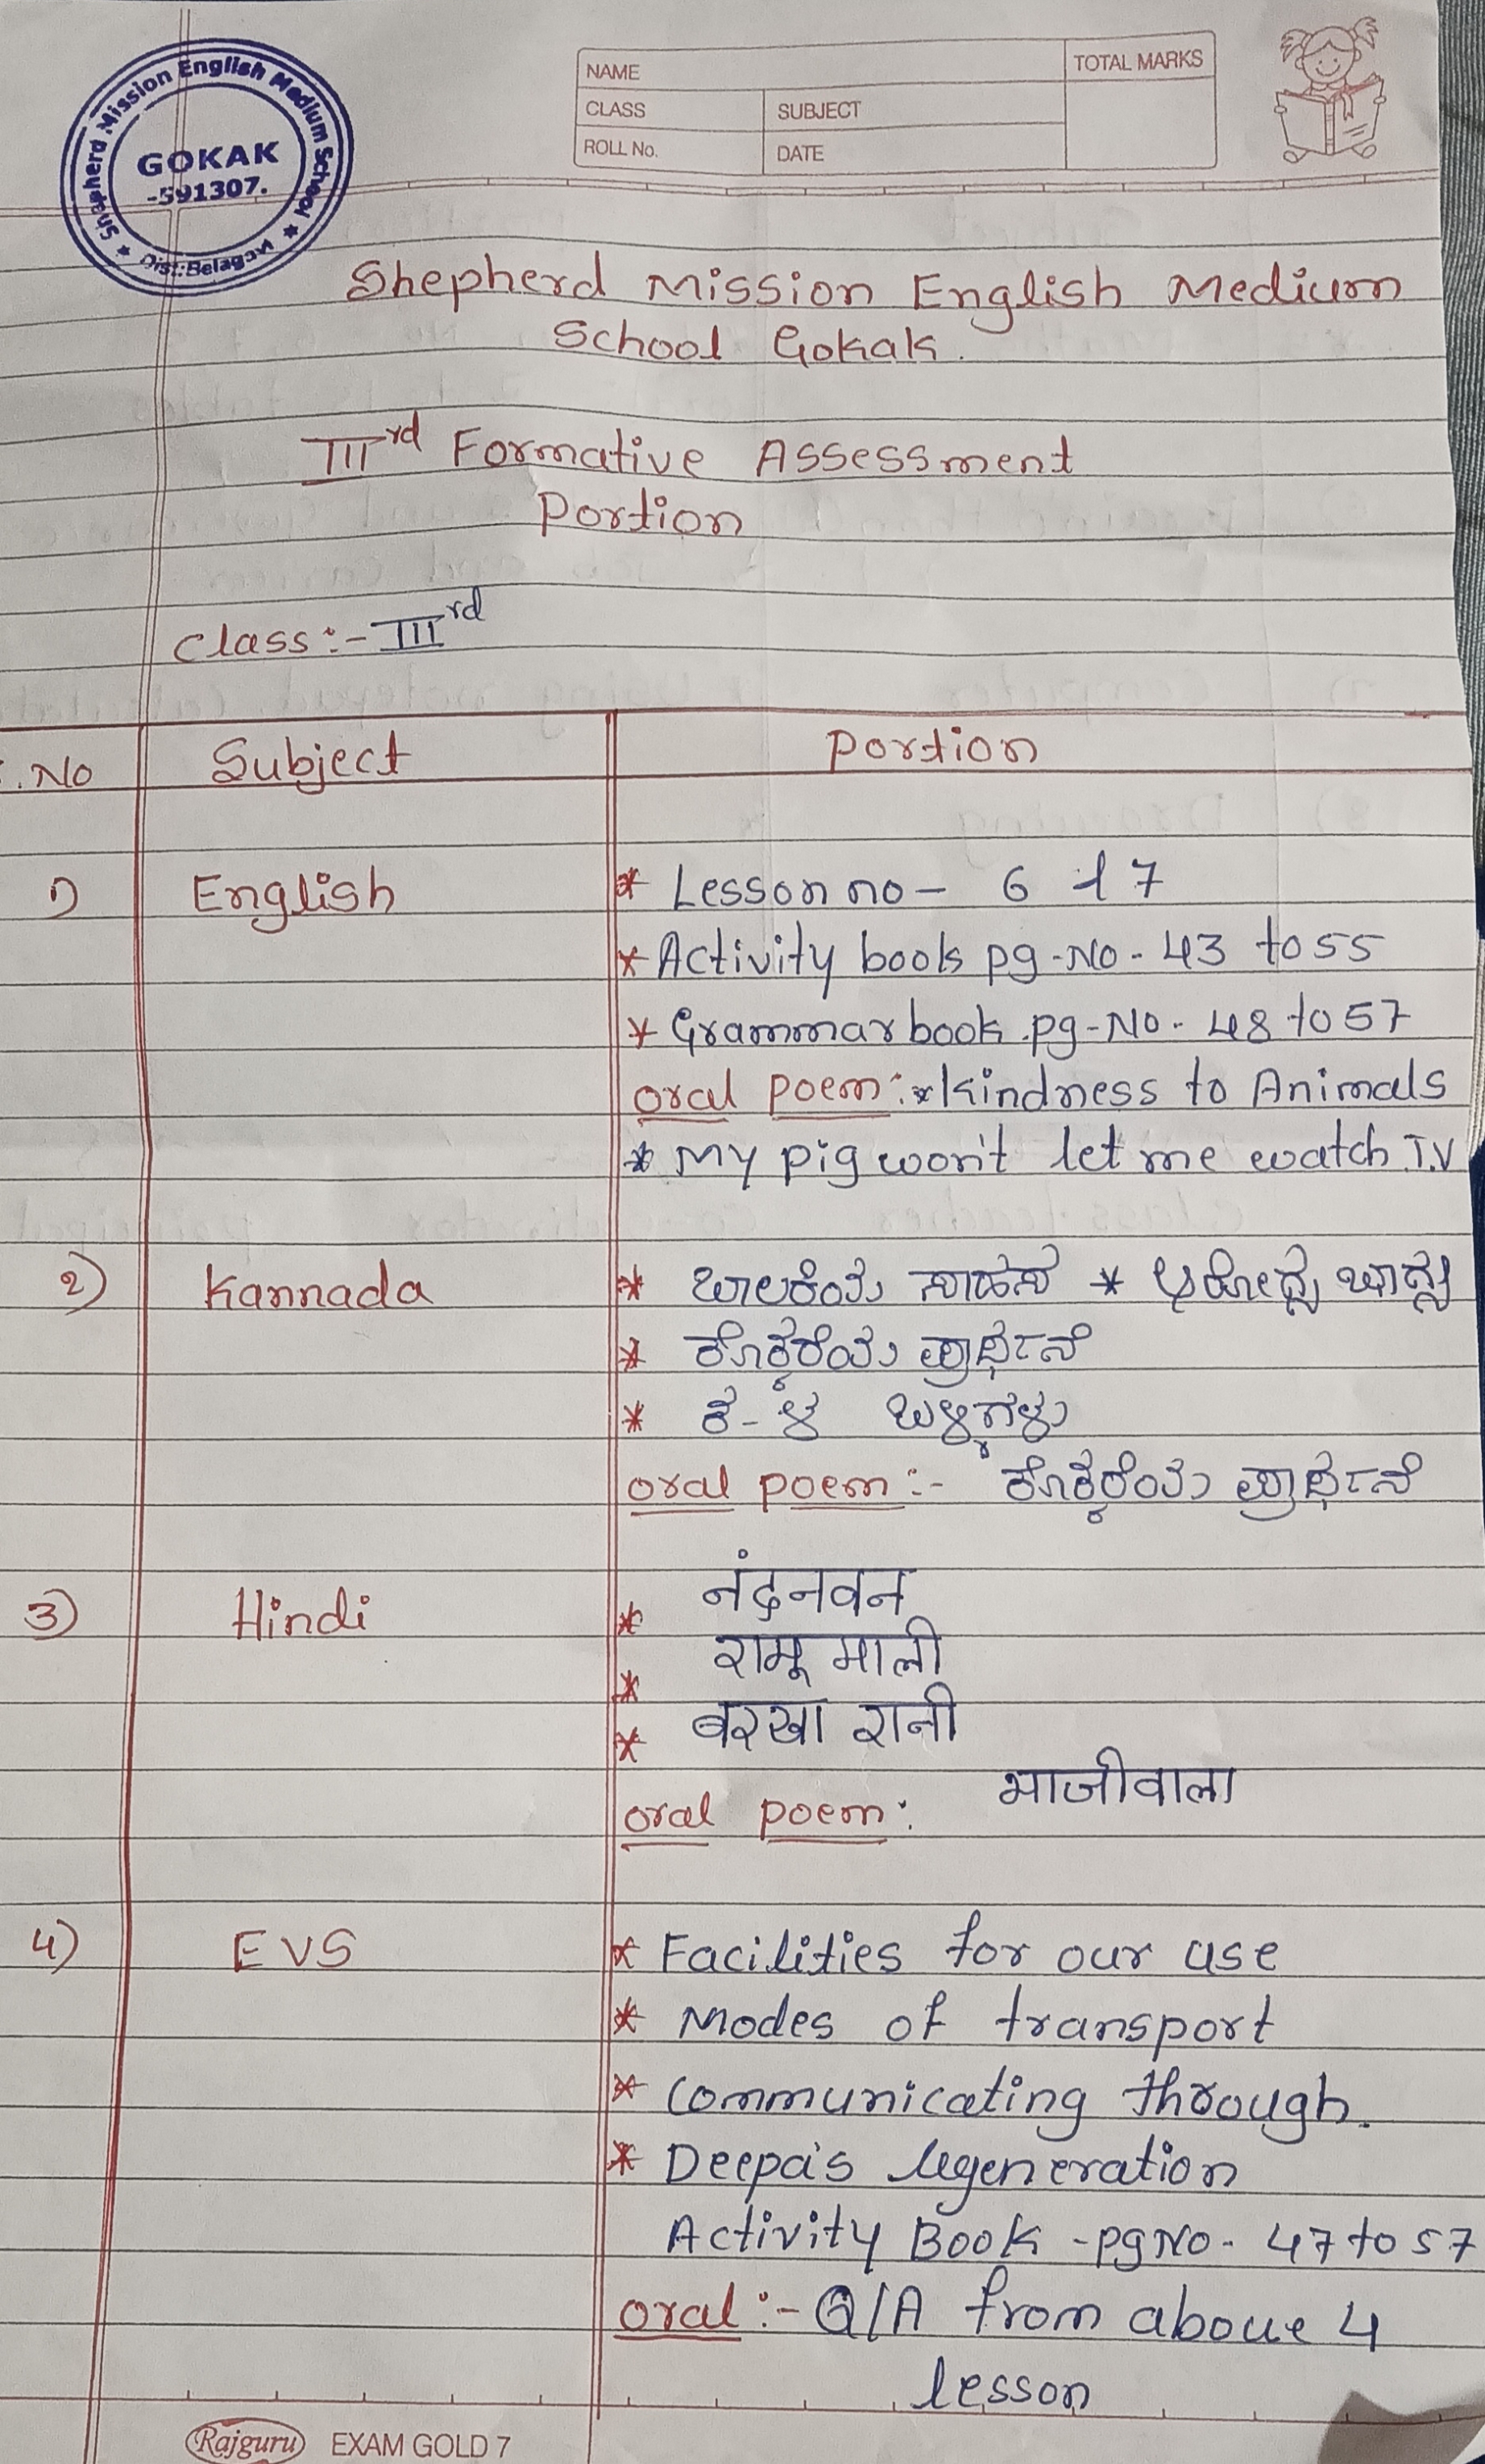 Shepherd Mission English Medium School
GOKAK
-591307.
Dist:Belagavi
NAME
CLASS
ROLL No.
SUBJECT
DATE
TOTAL MARKS
Shepherd Mission English Medium
School Gokak.
IIIrd Formative Assessment
Portion
Class:- IIIrd
.No Subject Portion
1) English * Lesson no - 6 17
* Activity book pg-No- 43 to 55
* Grammar book pg-No- 48 to 57
oral poem: * Kindness to Animals
* My pig won't let me watch T.V
2) Kannada * ಬಾಲಕಿಯ ಸಾಹಸ *
* ಕೊಕ್ಕರೆಯ ಪ್ರಾರ್ಥನೆ
* ಕ-ಳ ಬಳ್ಳಿಗಳು
oral poem:- ಕೊಕ್ಕರೆಯ ಪ್ರಾರ್ಥನೆ
3) Hindi * नंदनवन
* रामू माली
* बरखा रानी
oral poem: भाजीवाला
4) EVS * Facilities for our use
* Modes of transport
* Communicating through.
* Deepa's
Activity Book -pgNo- 47 to 57
oral :- Q/A from above 4
lesson
Rajguru EXAM GOLD 7